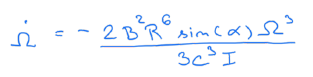 Ω̇ = - 2 B²R⁶ sin(α) Ω³ / 3c³ I